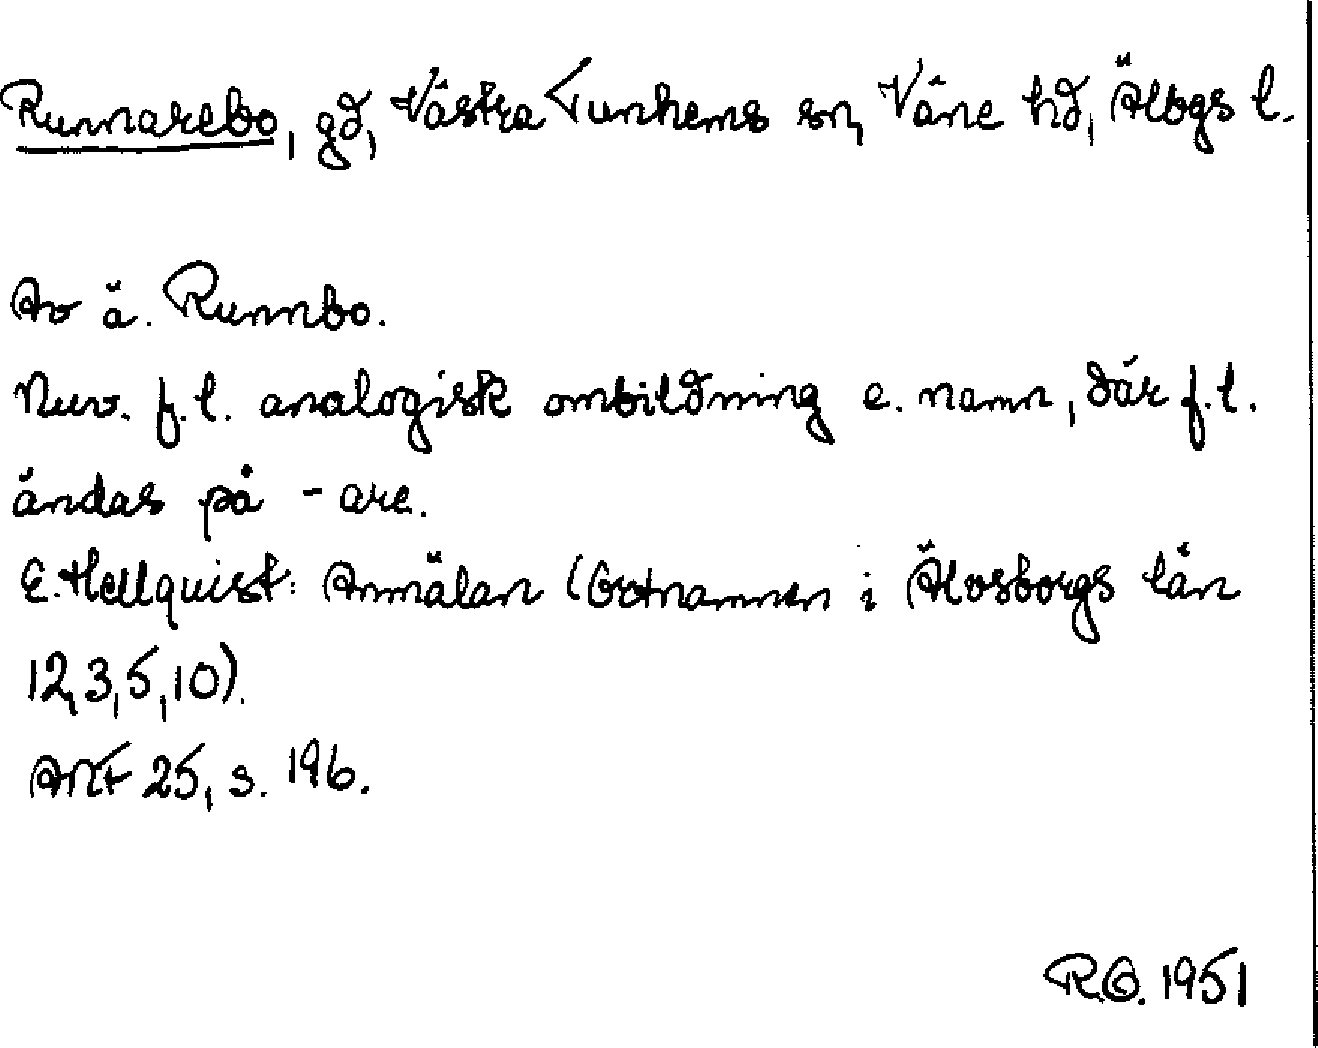 Runnarebo, gd, Västra Tunhems sn, Väne hd, Älbgs l.
Av ä. Runnbo.
Nuv. f.l. analogisk ombildning e. namn, där f.l.
ändas på -are.
E. Hellquist: Anmälan (Ortnamnen i Älvsborgs län
12,3,5,10).
ANF 25, s. 196.
R.O. 1951